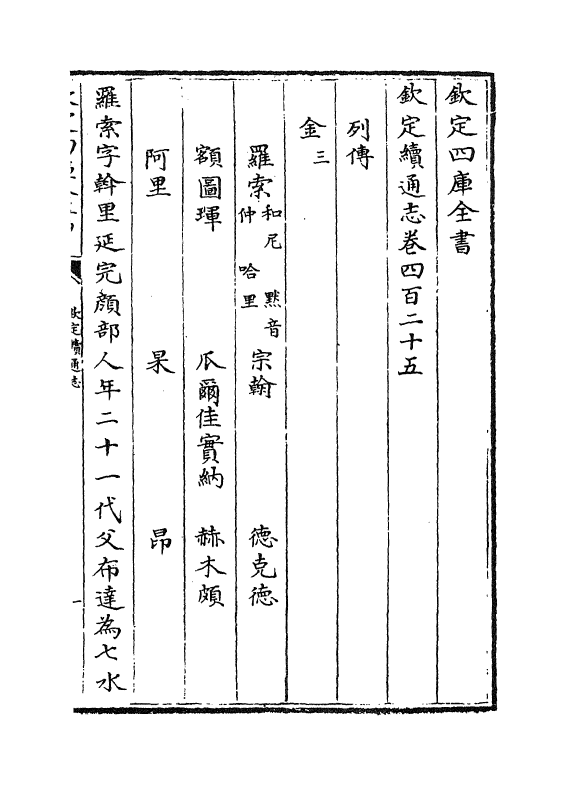 欽定四庫全書
欽定續通志卷四百二十五
列傳
金三
羅索和尼 默音仲 哈里 宗翰 德克德
額圖琿 瓜爾佳實納 赫木頗
阿里 杲 昂
羅索字斡里延完顔部人年二十一代父布達為七水
欽定續通志
一